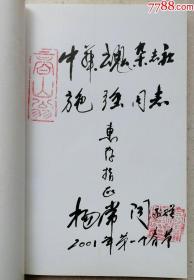 7788.com
中华魂杂志社
施强同志
惠存指正
杨常
2001年第一个春